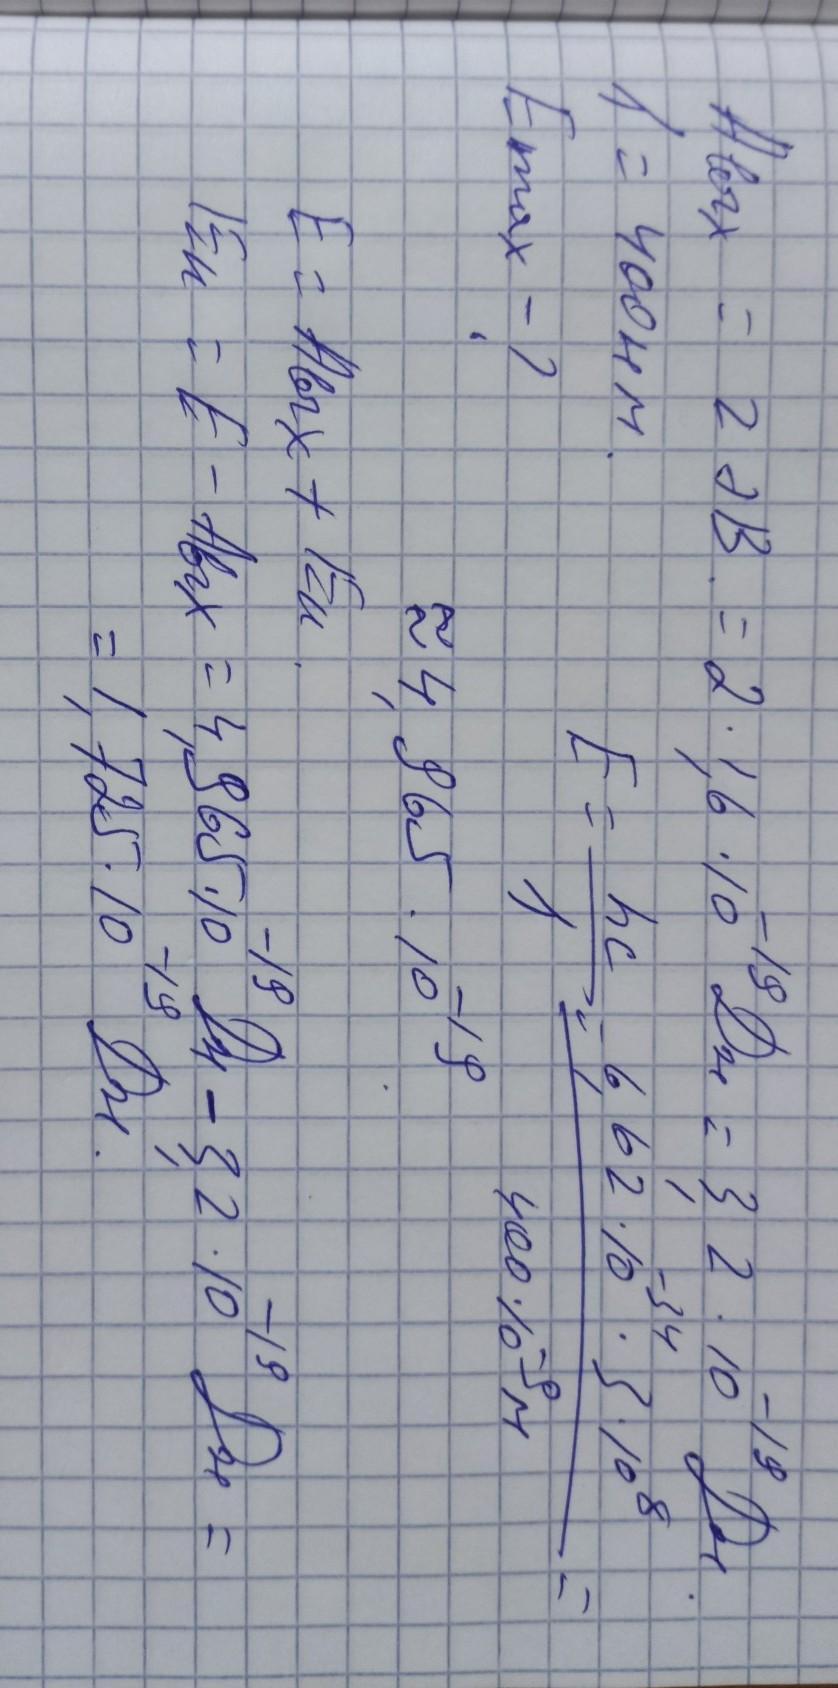 Aвых = 2 эВ. = 2 · 1,6 · 10⁻¹⁹ Дж = 3,2 · 10⁻¹⁹ Дж.
λ = 400 нм.
Emax - ?
E = hc/λ = 6,62·10⁻³⁴ · 3·10⁸ / 400·10⁻⁹ м =
≈ 4,965 · 10⁻¹⁹.
E = Aвых + Eк.
Eк = E - Aвых = 4,965·10⁻¹⁹ Дж - 3,2 · 10⁻¹⁹ Дж =
= 1,725 · 10⁻¹⁹ Дж.